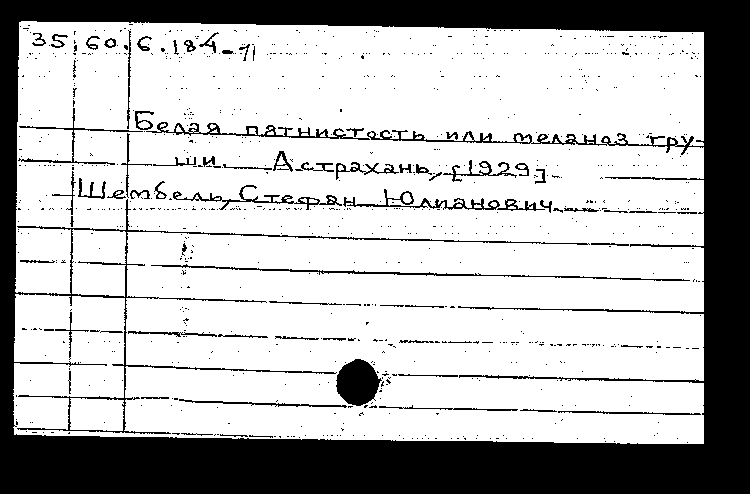 35.60.6.184-71
Белая пятнистость или меланоз гру-
ши. Астрахань, [1929]
Шембель, Стефан Юлианович.